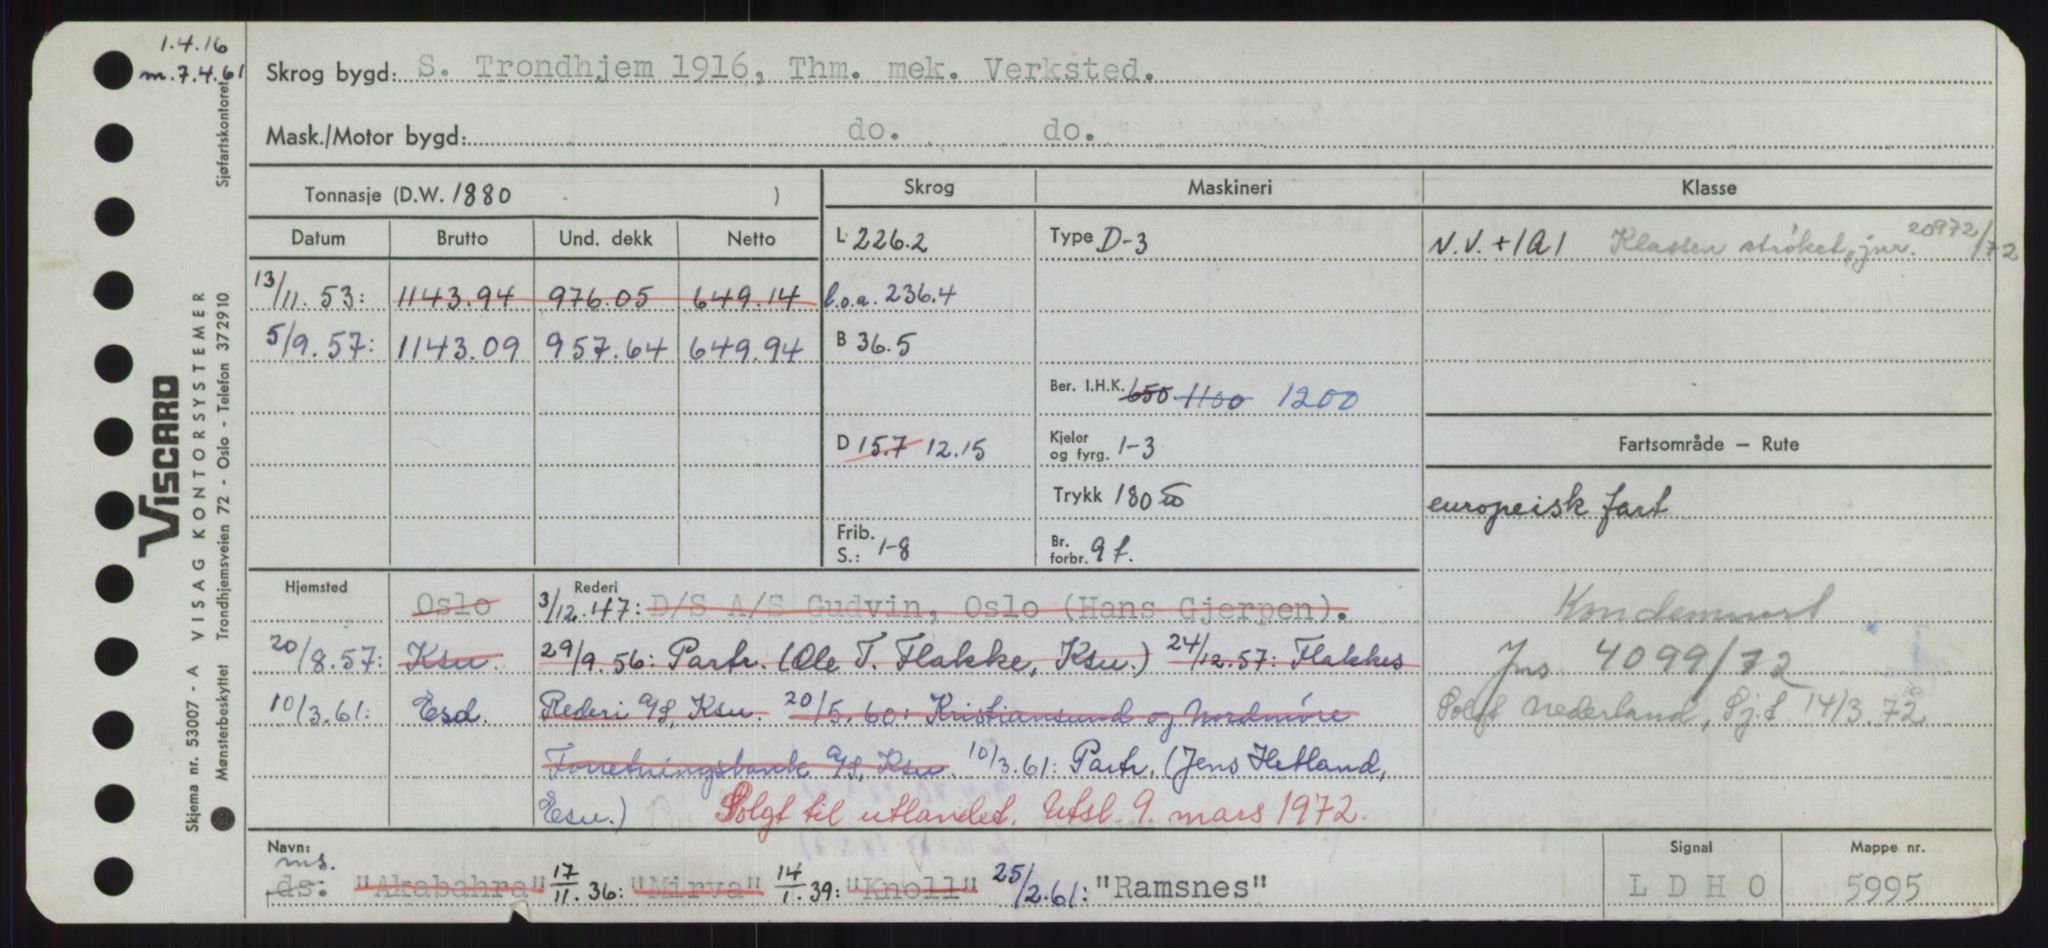 1.4.16
m. 7.4.61
Skrog bygd: S. Trondhjem 1916, Thm. mek. Verksted.
Mask./Motor bygd: do. do.
Tonnasje (D.W. 1880 )
Skrog
Maskineri
Klasse
Datum Brutto Und. dekk Netto
L 226.2
Type D-3
N.V. +1A1 Klassen strøket, jnr. 20972/72
13/11.53: 1143.94 976.05 649.14
l.o.a. 236.4
5/9.57: 1143.09 957.64 649.94
B 36.5
Ber. I.H.K. 650 1100 1200
D 15.7 12.15
Kjeler og fyrg. 1-3
Fartsområde – Rute
Trykk 180
europeisk fart
Frib. S.: 1-8
Br. forbr. 9 t.
Hjemsted
Rederi
Oslo 3/12.47: D/S A/S Gudvin, Oslo (Hans Gjerpen).
Kondemnert
20/8.57: Ksu. 29/9.56: Partr. (Ole T. Flakke, Ksu.) 24/12.57: Flakkes
Jnr. 4099/72
10/3.61: Esd. Rederi A/S, Ksu. 20/5.60: Kristiansund og Nordmøre
Solgt Nederland, Sj.f 14/3.72
Forretningsbank A/S, Ksu. 10/3.61: Partr. (Jens Hetland,
Esu.) Solgt til utlandet. Utsl. 9. mars 1972.
Navn:
ms.
ds: "Akabahra" 17/11.36: "Mirva" 14/1.39: "Knoll" 25/2.61: "Ramsnes"
Signal
LDHO
Mappe nr.
5995
VISCARD
Skjema nr. 53007 - A VISAG KONTORSYSTEMER
Mønsterbeskyttet Trondhjemsveien 72 - Oslo - Telefon 372910
Sjøfartskontoret